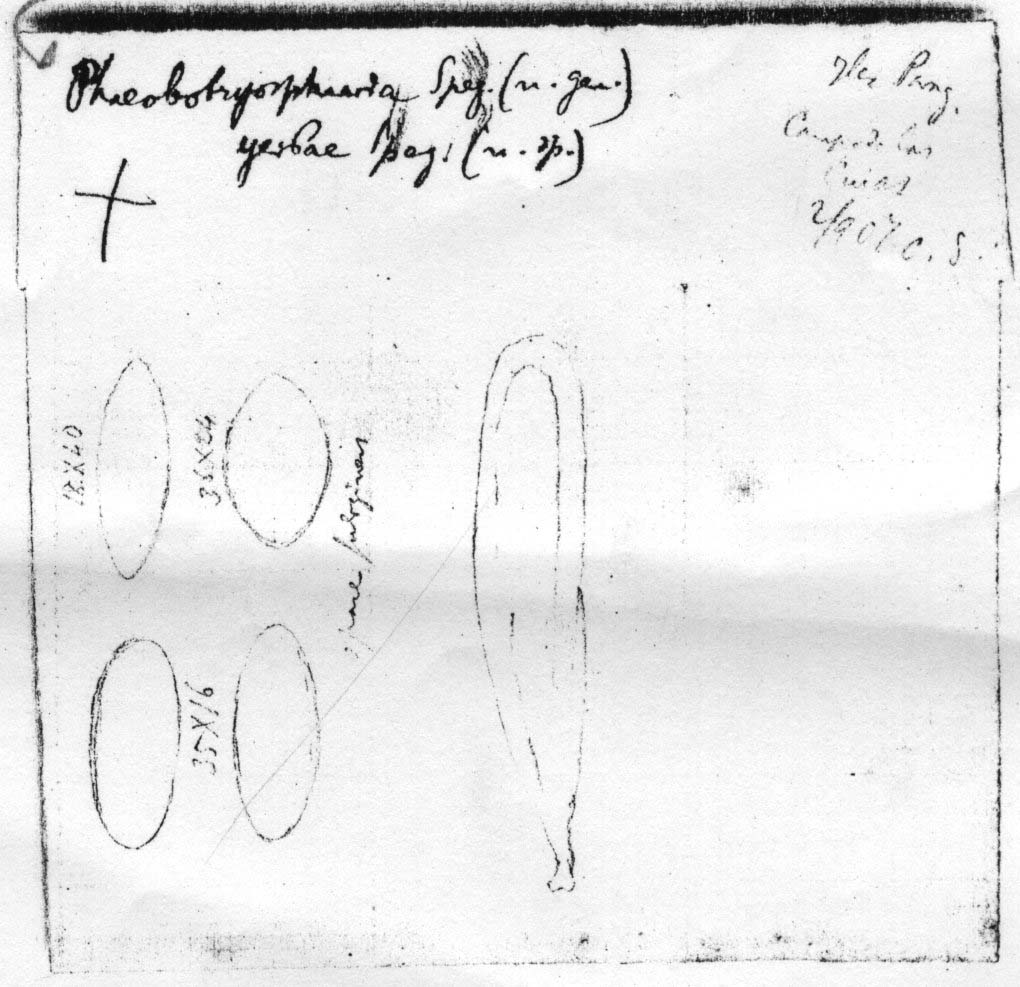 Phaeobotryosphaeria Speg. (n. gen.)
yerbae Speg. (n. sp.)
Ilex Parag.
Campo de las
Cuias
2/907 C. S.
18X40
36X24
spore fuligineae
35X16